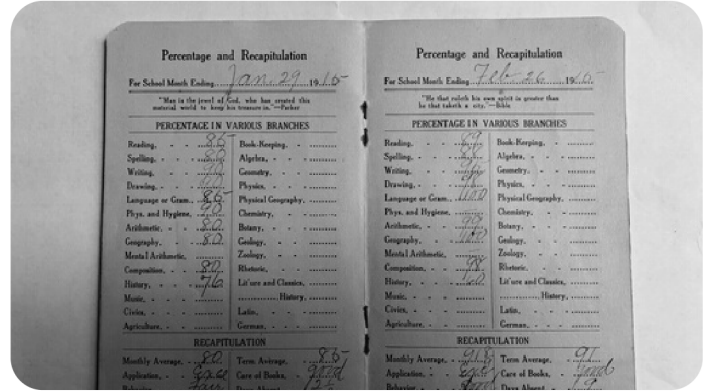 Percentage and Recapitulation
For School Month Ending Jan. 29 1915
"Man is the jewel of God, who has created this
material world to keep his treasure in."—Parker
PERCENTAGE IN VARIOUS BRANCHES
Reading, 85
Spelling, 80
Writing,
Drawing,
Language or Gram., 85
Phys. and Hygiene, 90
Arithmetic, 80
Geography, 80
Mental Arithmetic,
Composition, 80
History, 76
Music,
Civics,
Agriculture,
Book-Keeping,
Algebra,
Geometry,
Physics,
Physical Geography,
Chemistry,
Botany,
Geology,
Zoology,
Rhetoric,
Lit'ure and Classics,
History,
Latin,
German,
RECAPITULATION
Monthly Average, 80 Term Average, 85
Application, Care of Books, good
Behavior, Fair Days Absent,
Percentage and Recapitulation
For School Month Ending Feb 26 1915
"He that ruleth his own spirit is greater than
he that taketh a city."—Bible
PERCENTAGE IN VARIOUS BRANCHES
Reading, 89
Spelling,
Writing,
Drawing,
Language or Gram., 100
Phys. and Hygiene,
Arithmetic, 98
Geography, 100
Mental Arithmetic,
Composition, 98
History, 100
Music,
Civics,
Agriculture,
Book-Keeping,
Algebra,
Geometry,
Physics,
Physical Geography,
Chemistry,
Botany,
Geology,
Zoology,
Rhetoric,
Lit'ure and Classics,
History,
Latin,
German,
RECAPITULATION
Monthly Average, Term Average, 91
Application, Care of Books, good
Behavior, Days Absent,